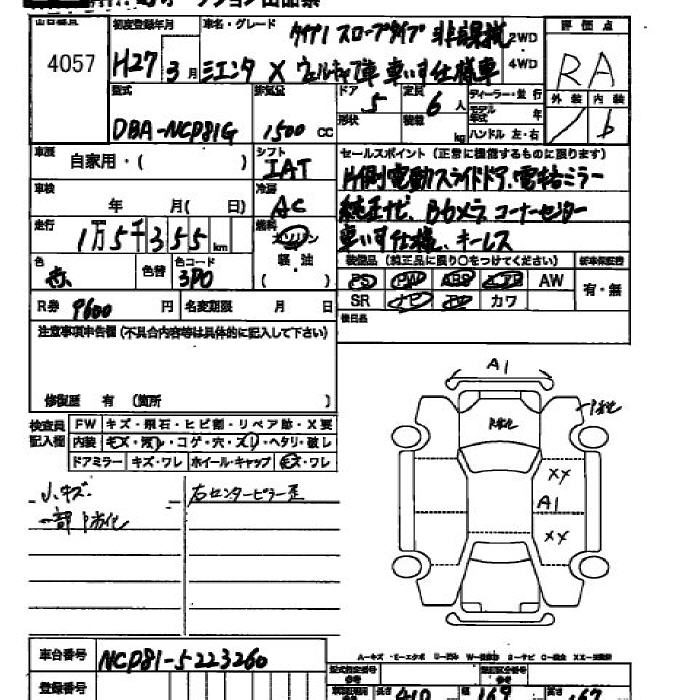 オークション出品票
出品番号 初度登録年月 車名・グレード タイプI スロープタイプ 非課税 2WD 4WD 評価点
4057 H27 3月 ミエンタ X ウェルキャブ車 車いす仕様車 RA
型式 排気量 ドア 5 定員 6人 ディーラー・並行 外装 内装
DBA-NCP81G 1500 CC 形状 積載 kg モデル年式 年 ハンドル 左・右 / b
車歴 自家用・( ) シフト IAT セールスポイント (正常に機能するものに限ります)
車検 年 月( 日) 冷房 AC 片側電動スライドドア、電格ミラー
純正ナビ、Bカメラ、コーナーセンサー
走行 1万5千355km 燃料 ガソリン 軽油 ( ) 車いす仕様、キーレス
色 赤 色替 色コード 3P0 装備品 (純正品に限り○をつけてください) 新車保証書
PS PW ABS エアB AW 有・無
R券 9600円 名変期限 月 日 SR ナビ カワ
注意事項申告欄 (不具合内容等は具体的に記入して下さい) 後日品
修復歴 有 (箇所
検査員記入欄 FW キズ・飛石・ヒビ割・リペア跡・X要
内装 キズ・汚れ・コゲ・穴・スレ・ヘタリ・破レ
ドアミラー キズ・ワレ ホイール・キャップ キズ・ワレ
小キズ 右センターピラー歪
一部P劣化
A1
P劣化
P劣化
XX
A1
XX
車台番号 NCP81-5223260
登録番号
型式指定番号 類別区分番号
長さ 410 幅 169 高さ 167